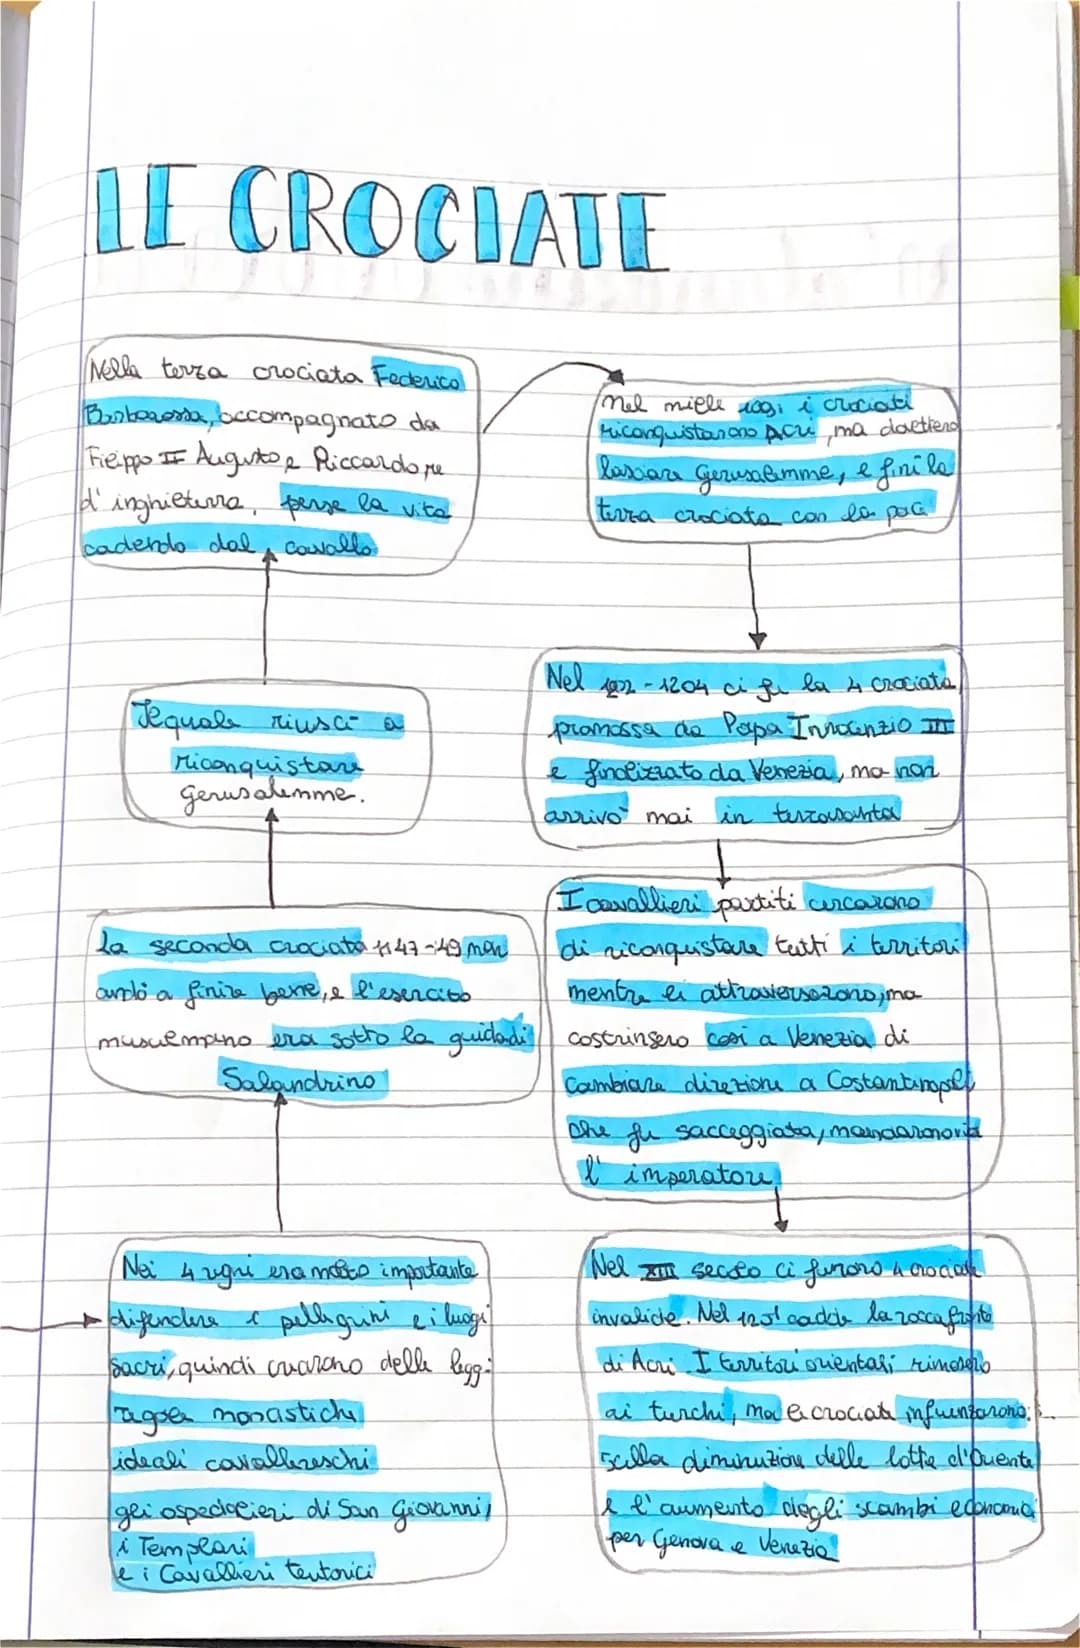 LE CROCIATE
Nella terza crociata Federico
Barbarossa, accompagnato da
Filippo II Augusto e Riccardo re
d'inghilterra, perse la vita
cadendo dal cavallo
nel mille i crociati
riconquistarono Acri, ma dovettero
lasciare Gerusalemme, e finì la
terza crociata con la pace
Il quale riuscì a
riconquistare
Gerusalemme.
Nel - 1204 ci fu la 4 crociata
promossa da Papa Innocenzio III
e finalizzato da Venezia, ma non
arrivò mai in terrasanta
La seconda crociata 1147-49 non
andò a finire bene, e l'esercito
musulmano era sotto la guida di
Saladino
I cavallieri partiti cercarono
di riconquistare tutti i territori
mentre li attraversarono, ma
costrinsero così a Venezia di
cambiare direzione a Costantinopoli
che fu saccheggiata, mandarono via
l'imperatore
Nei 4 regni era molto importante
difendere i pellegrini e i luoghi
sacri, quindi crearono delle leggi
regole monastiche
ideali cavallereschi
gli ospedalieri di San Giovanni,
i Templari
e i Cavallieri teutonici
Nel XIII secolo ci furono 4 crociate
invalide. Nel cadde la roccaforte
di Acri. I territori orientali rimasero
ai turchi, ma le crociate influenzarono:
sulla diminuzione delle lotte d'Oriente
e l'aumento degli scambi economici
per Genova e Venezia